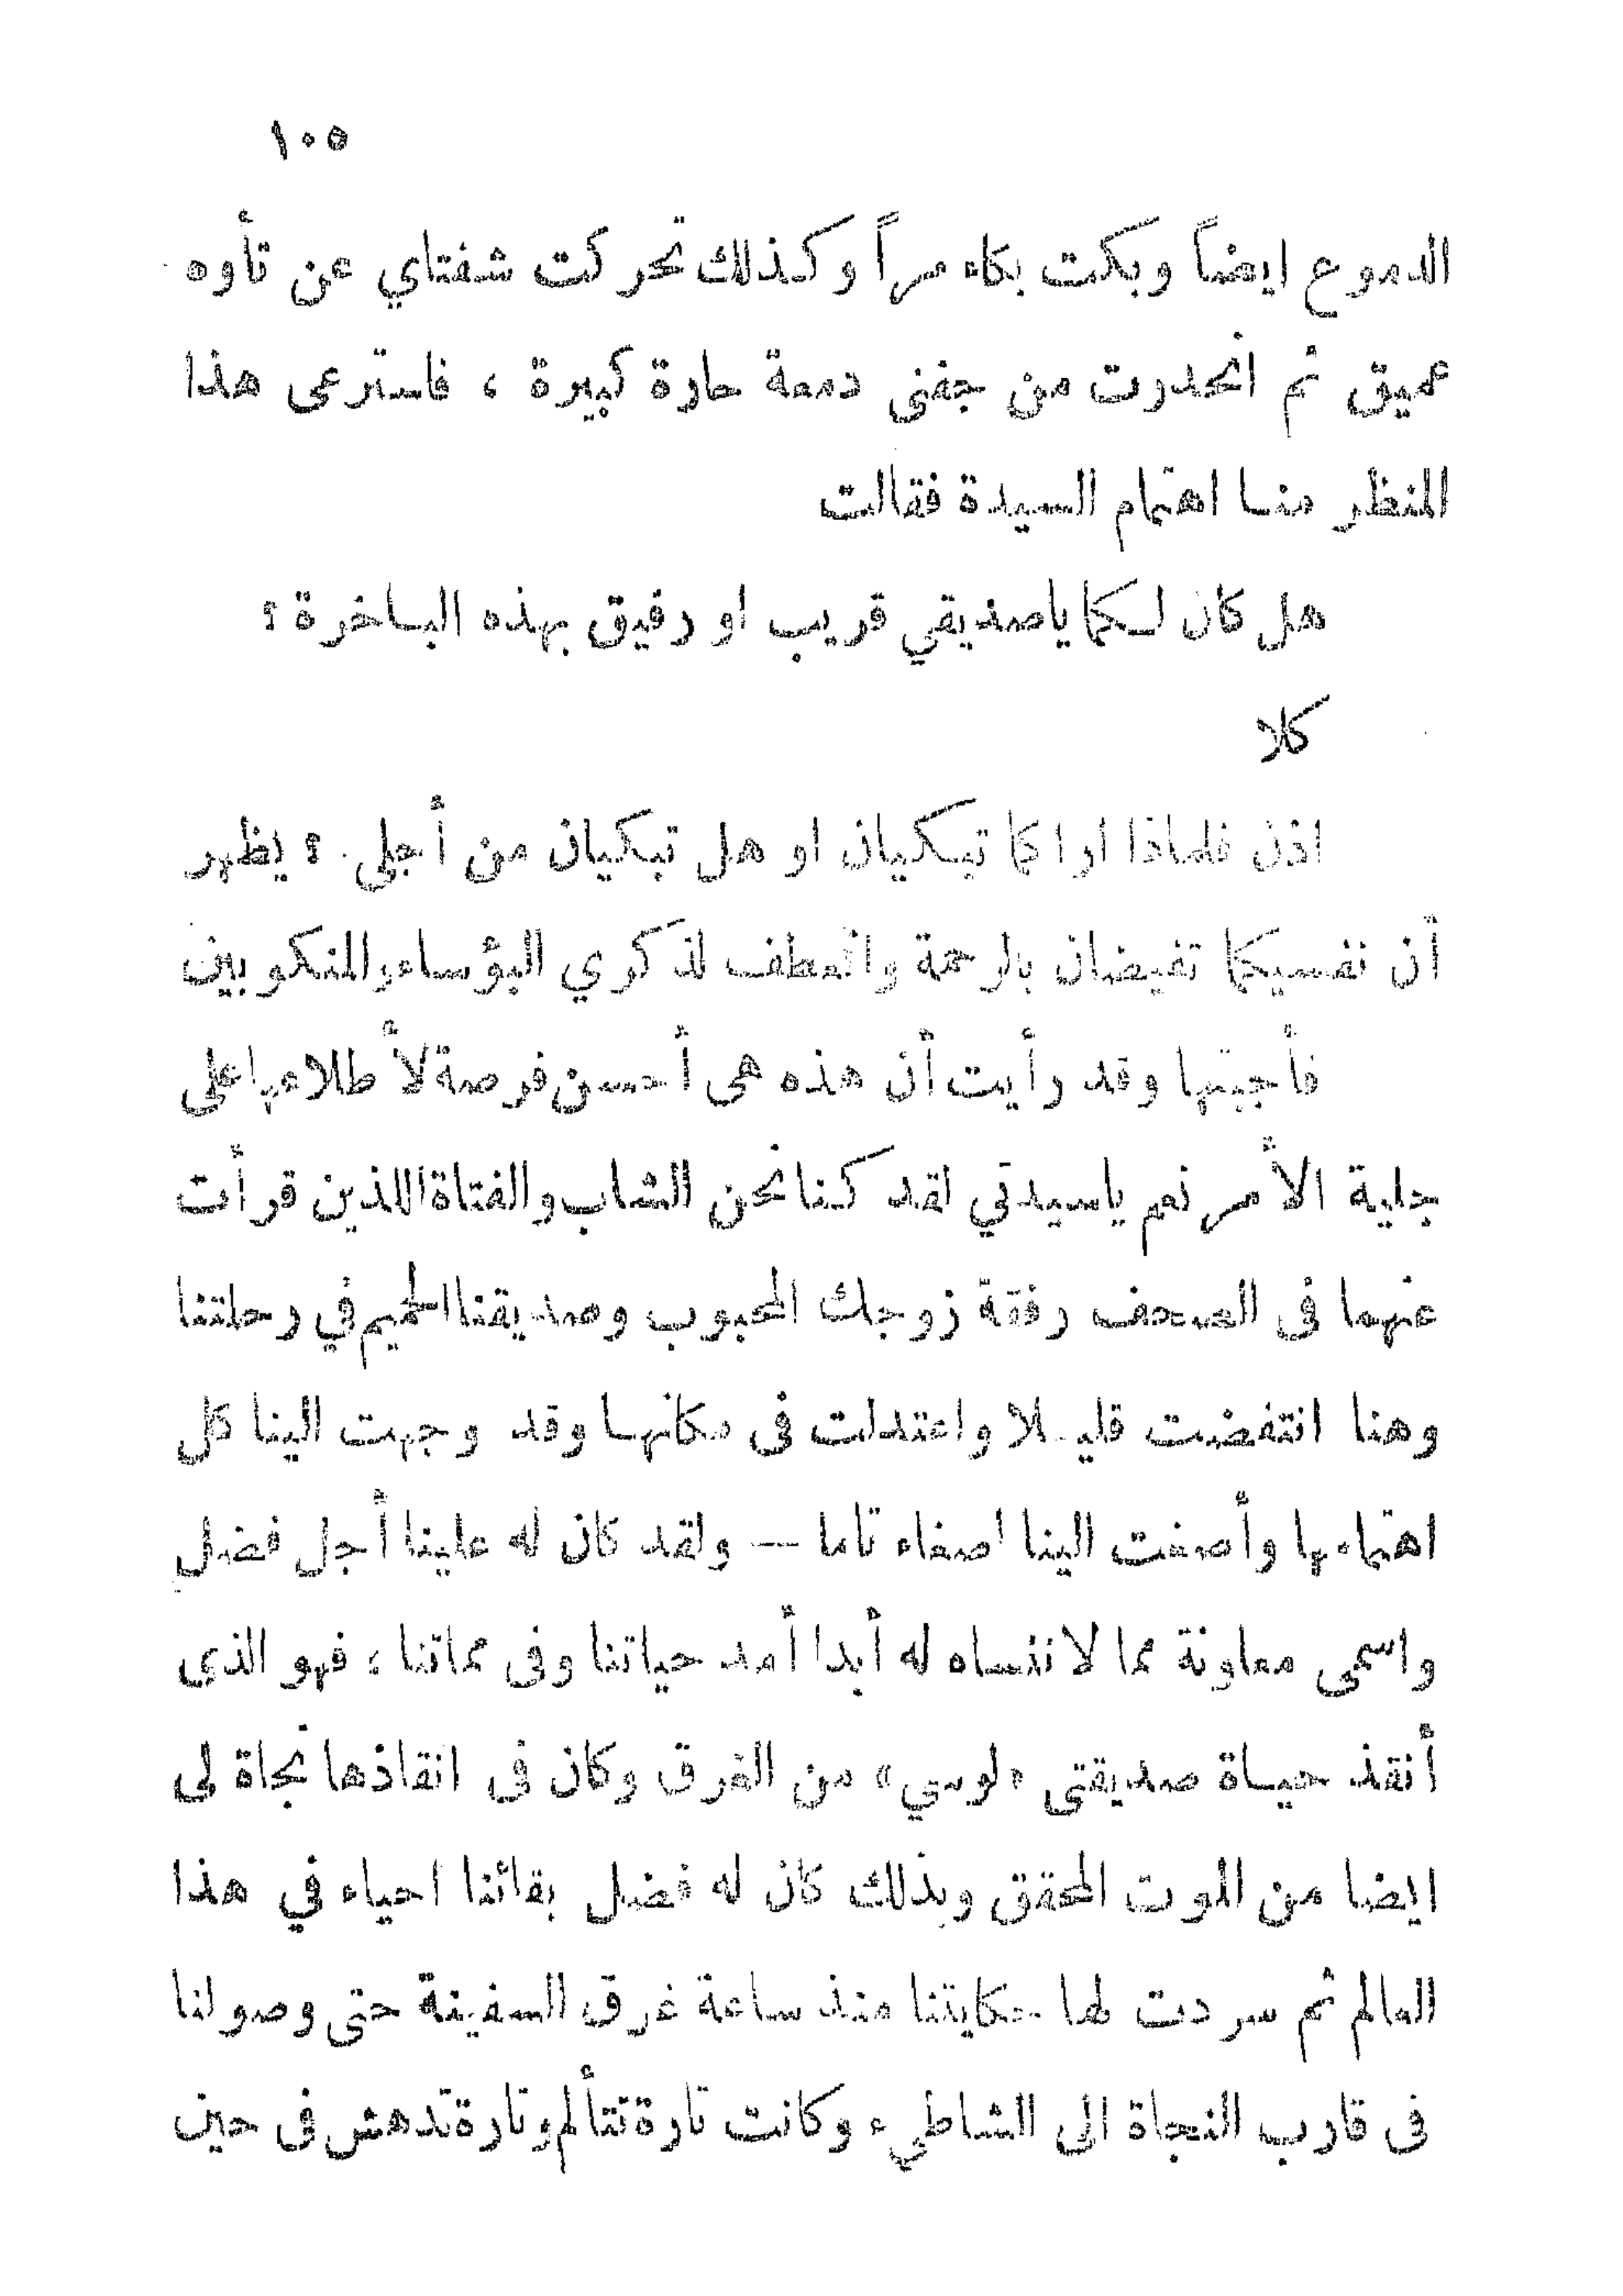 ١٠٥
الدموع ايضاً وبكت بكاء مراً وكذلك تحركت شفتاي عن تأوه
عميق ثم انحدرت من جفنى دمعة حارة كبيرة ، فاسترعى هذا
المنظر منا اهتمام السيدة فقالت
هل كان لكما ياصديقي قريب او رفيق بهذه الباخرة ؟
كلا
اذن فلماذا اراكما تبكيان او هل تبكيان من أجلى ؟ يظهر
أن نفسيكما تفيضان بالرحمة والعطف لذكري البؤساء والمنكوبين
فأجبتها وقد رأيت أن هذه هى أحسن فرصة لأطلاعها على
جلية الأمر نعم ياسيدتي لقد كنا نحن الشاب والفتاة اللذين قرأت
عنهما فى الصحف رفقة زوجك المحبوب وصديقنا الحميم في رحلتنا
وهنا انتفضت قليلا واعتدلت فى مكانها وقد وجهت الينا كل
اهتمامها وأصغت الينا اصغاء تاما — ولقد كان له علينا أجل فضل
واسمى معاونة مما لاننساه له أبدا أمد حياتنا وفى مماتنا ، فهو الذى
أنقذ حياة صديقتى «لوسي» من الغرق وكان فى انقاذها نجاة لى
ايضا من الموت المحقق وبذلك كان له فضل بقائنا احياء في هذا
العالم ثم سردت لها حكايتنا منذ ساعة غرق السفينة حتى وصولنا
فى قارب النجاة الى الشاطيء وكانت تارة تتألم وتارة تدهش فى حين